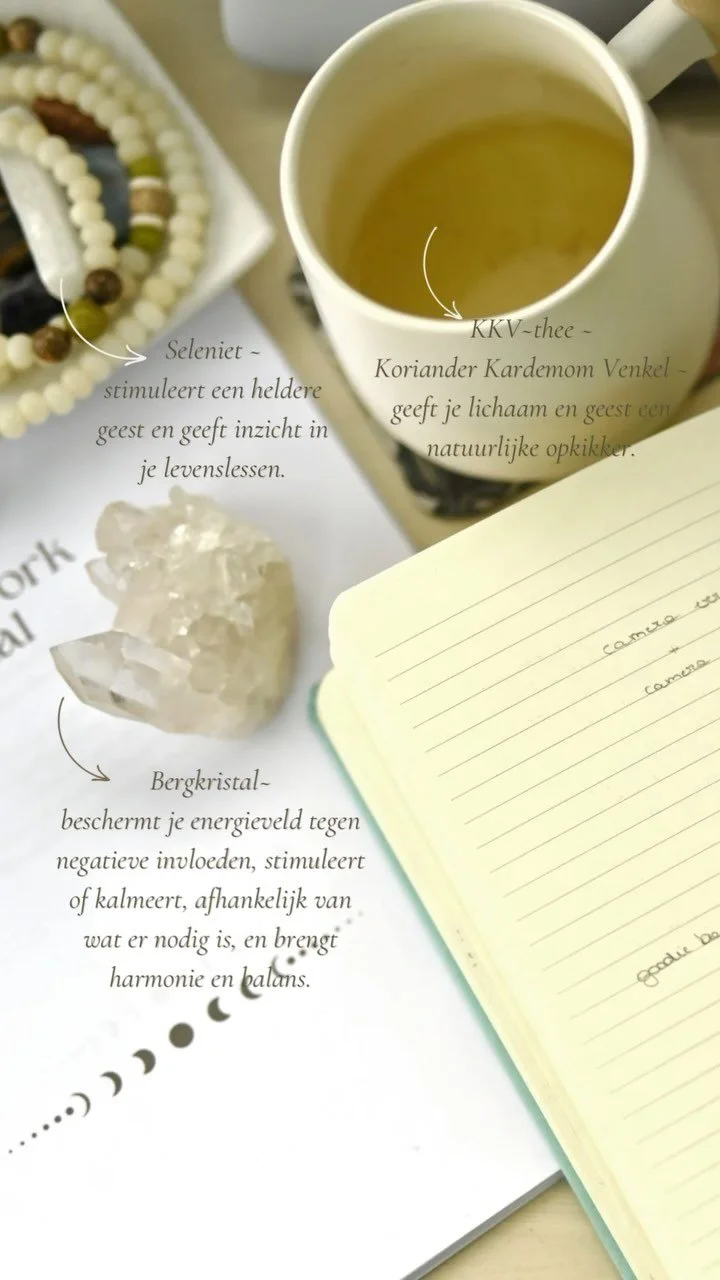 Seleniet ~
stimuleert een heldere
geest en geeft inzicht in
je levenslessen.
KKV~thee ~
Koriander Kardemom Venkel ~
geeft je lichaam en geest een
natuurlijke opkikker.
camera
+
camera
Bergkristal~
beschermt je energieveld tegen
negatieve invloeden, stimuleert
of kalmeert, afhankelijk van
wat er nodig is, en brengt
harmonie en balans.
goodie